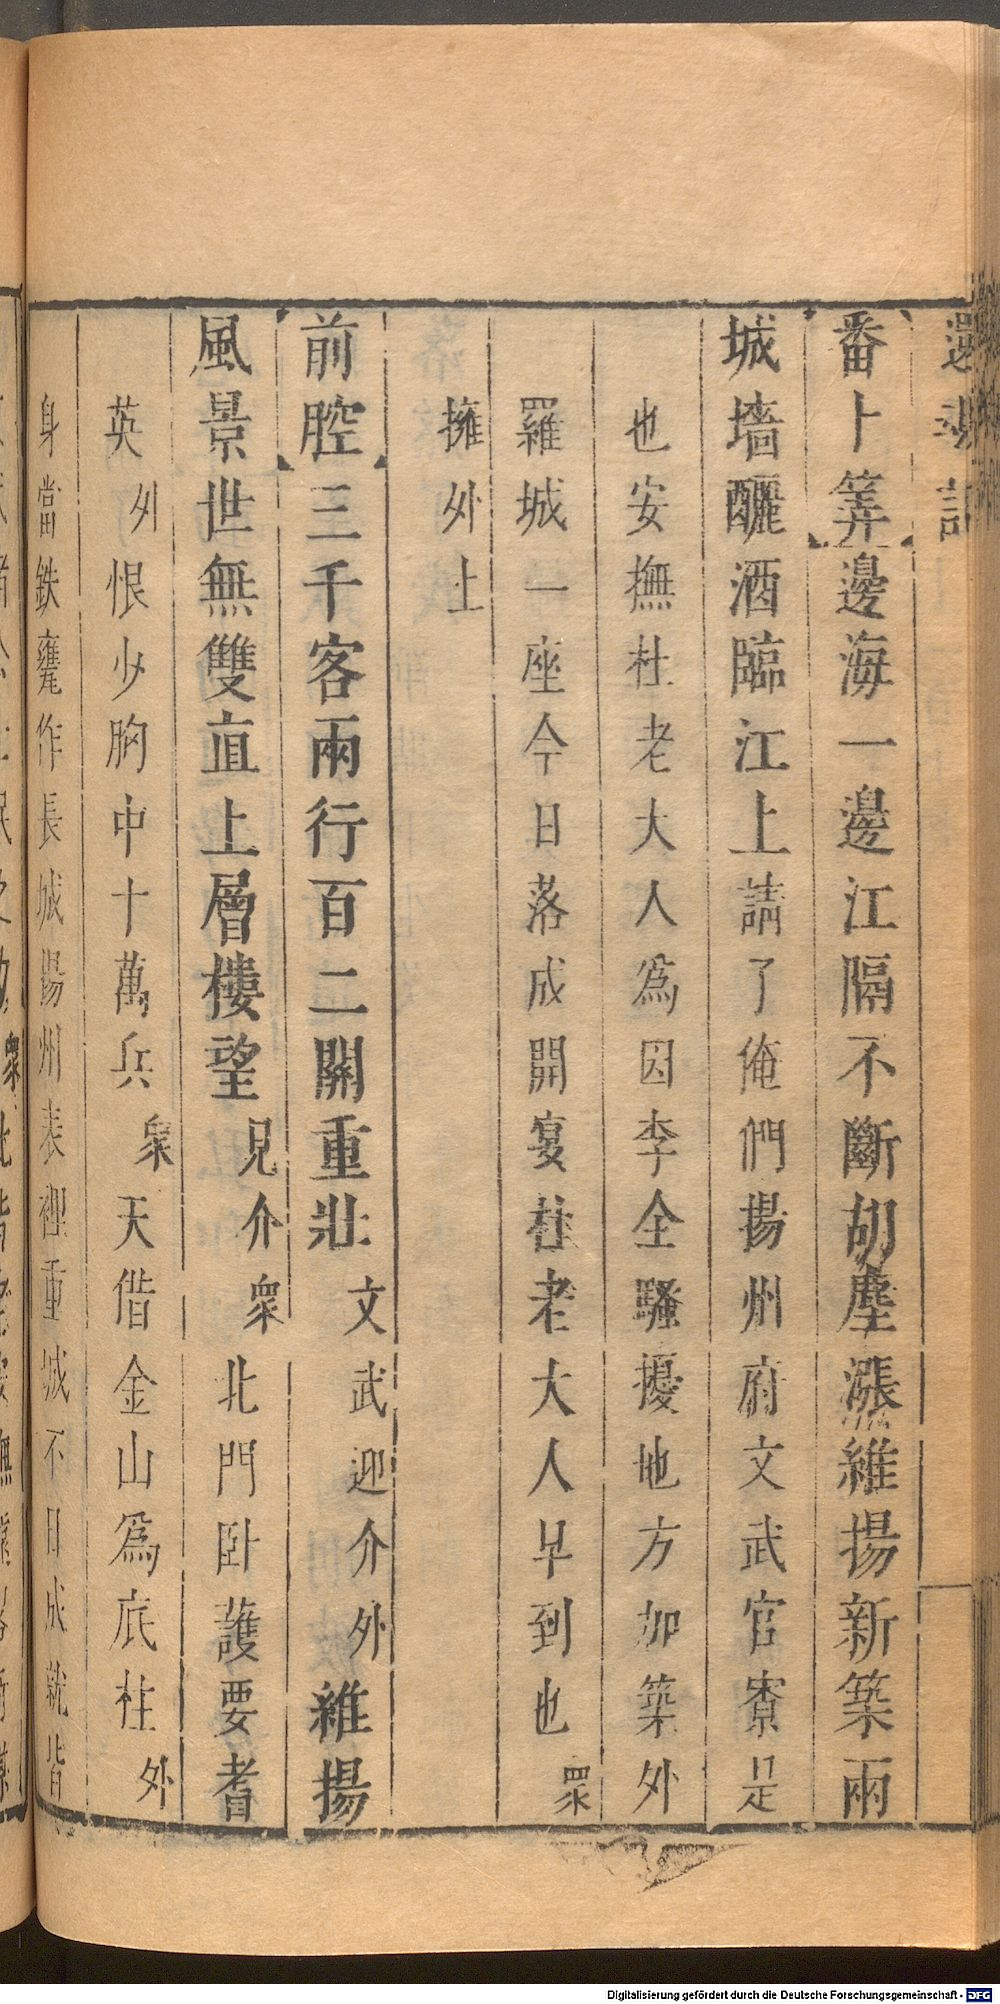 還魂記
番卜筭邊海一邊江隔不斷胡塵漲維揚新築兩
城墻釃酒臨江上請了俺們揚州府文武官寮是
也安撫杜老大人為因李全騷擾地方加築外
羅城一座今日落成開宴杜老大人早到也衆
擁外上
前腔三千客兩行百二關重壯文武迎介外維揚
風景世無雙直上層樓望見介衆北門卧護要耆
英外恨少胸中十萬兵衆天偕金山爲底柱外
身當鉄甕作長城揚州表裡重城不日成就皆
Digitalisierung gefördert durch die Deutsche Forschungsgemeinschaft - DFG